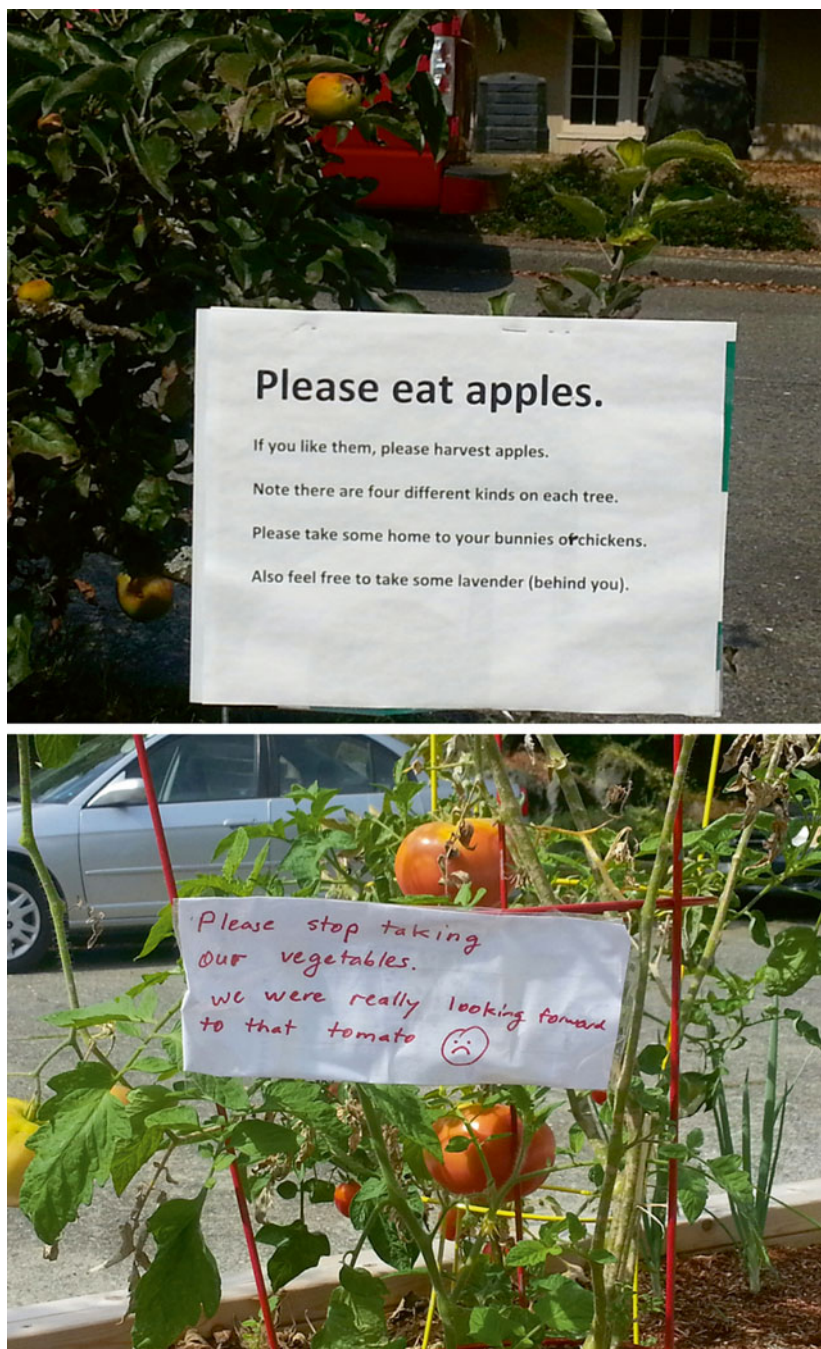 Please eat apples.
If you like them, please harvest apples.
Note there are four different kinds on each tree.
Please take some home to your bunnies or chickens.
Also feel free to take some lavender (behind you).
Please stop taking
our vegetables.
we were really looking forward
to that tomato